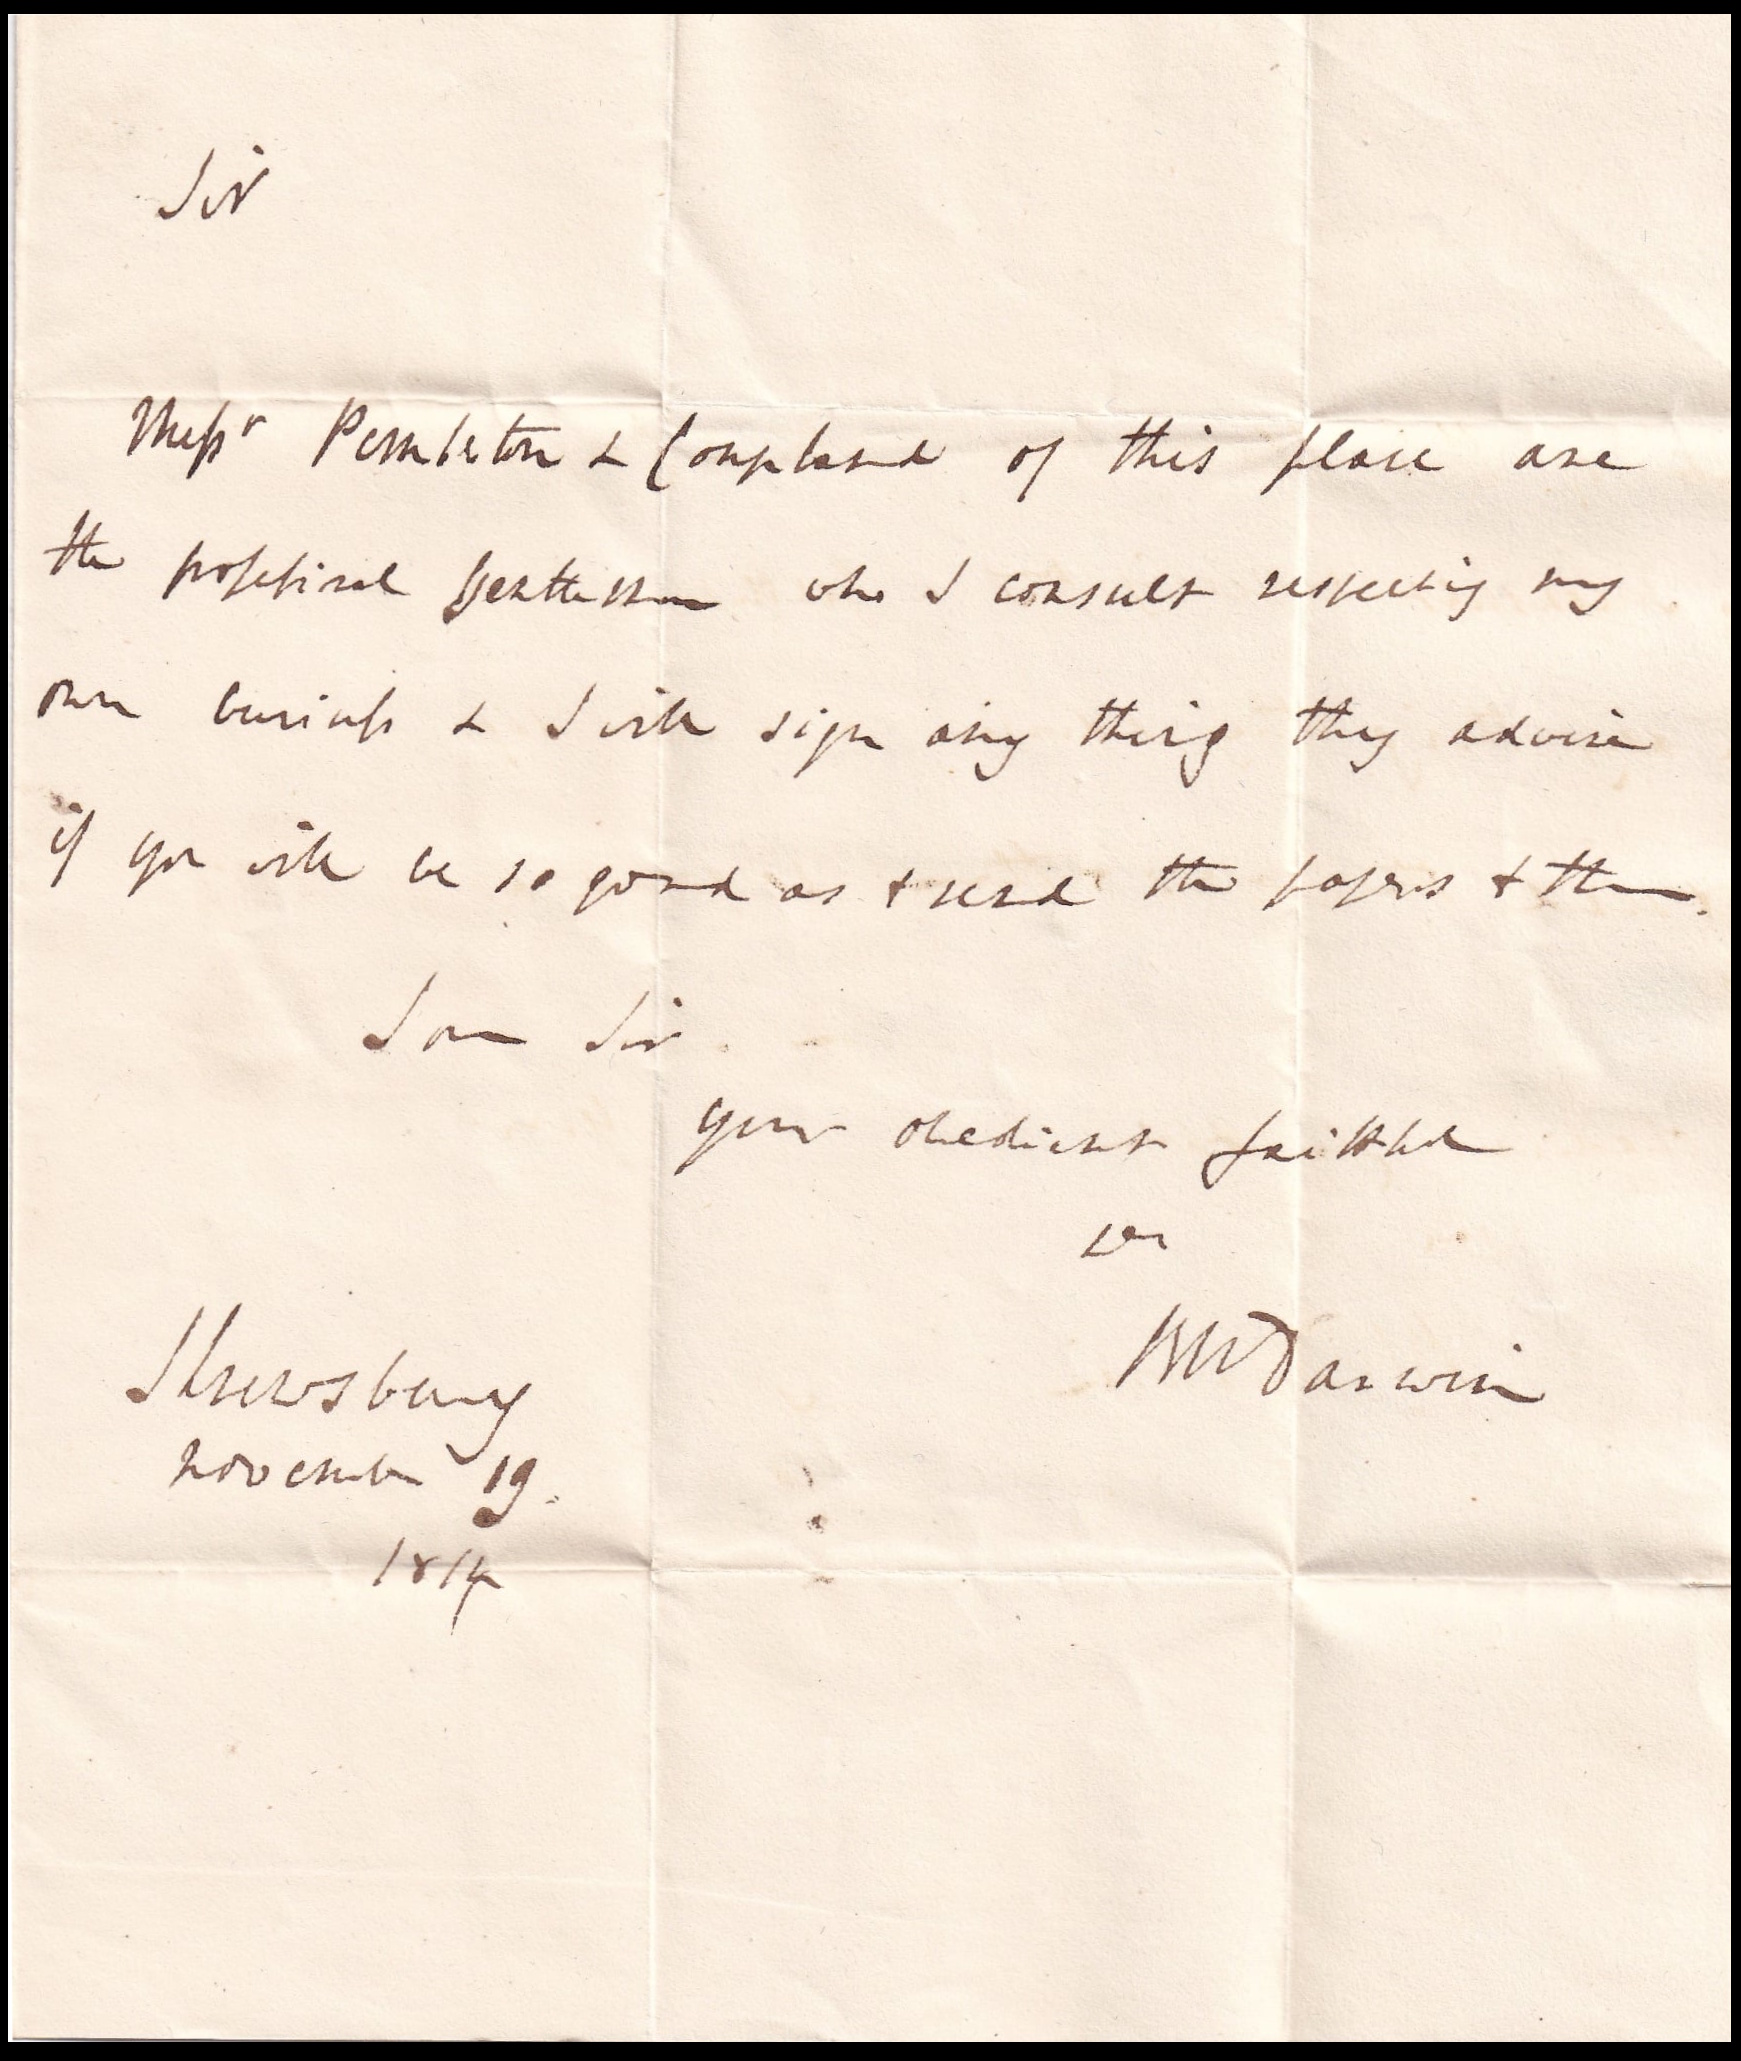 Sir
Messrs Pemberton & Coupland of this place are
the professional Gentlemen who I consult respecting my
own business & I will sign any thing they advise
if you will be so good as to send the papers to them.
I am Sir
your obedient faithful
ser
RW Darwin
Shrewsbury
November 19.
1814